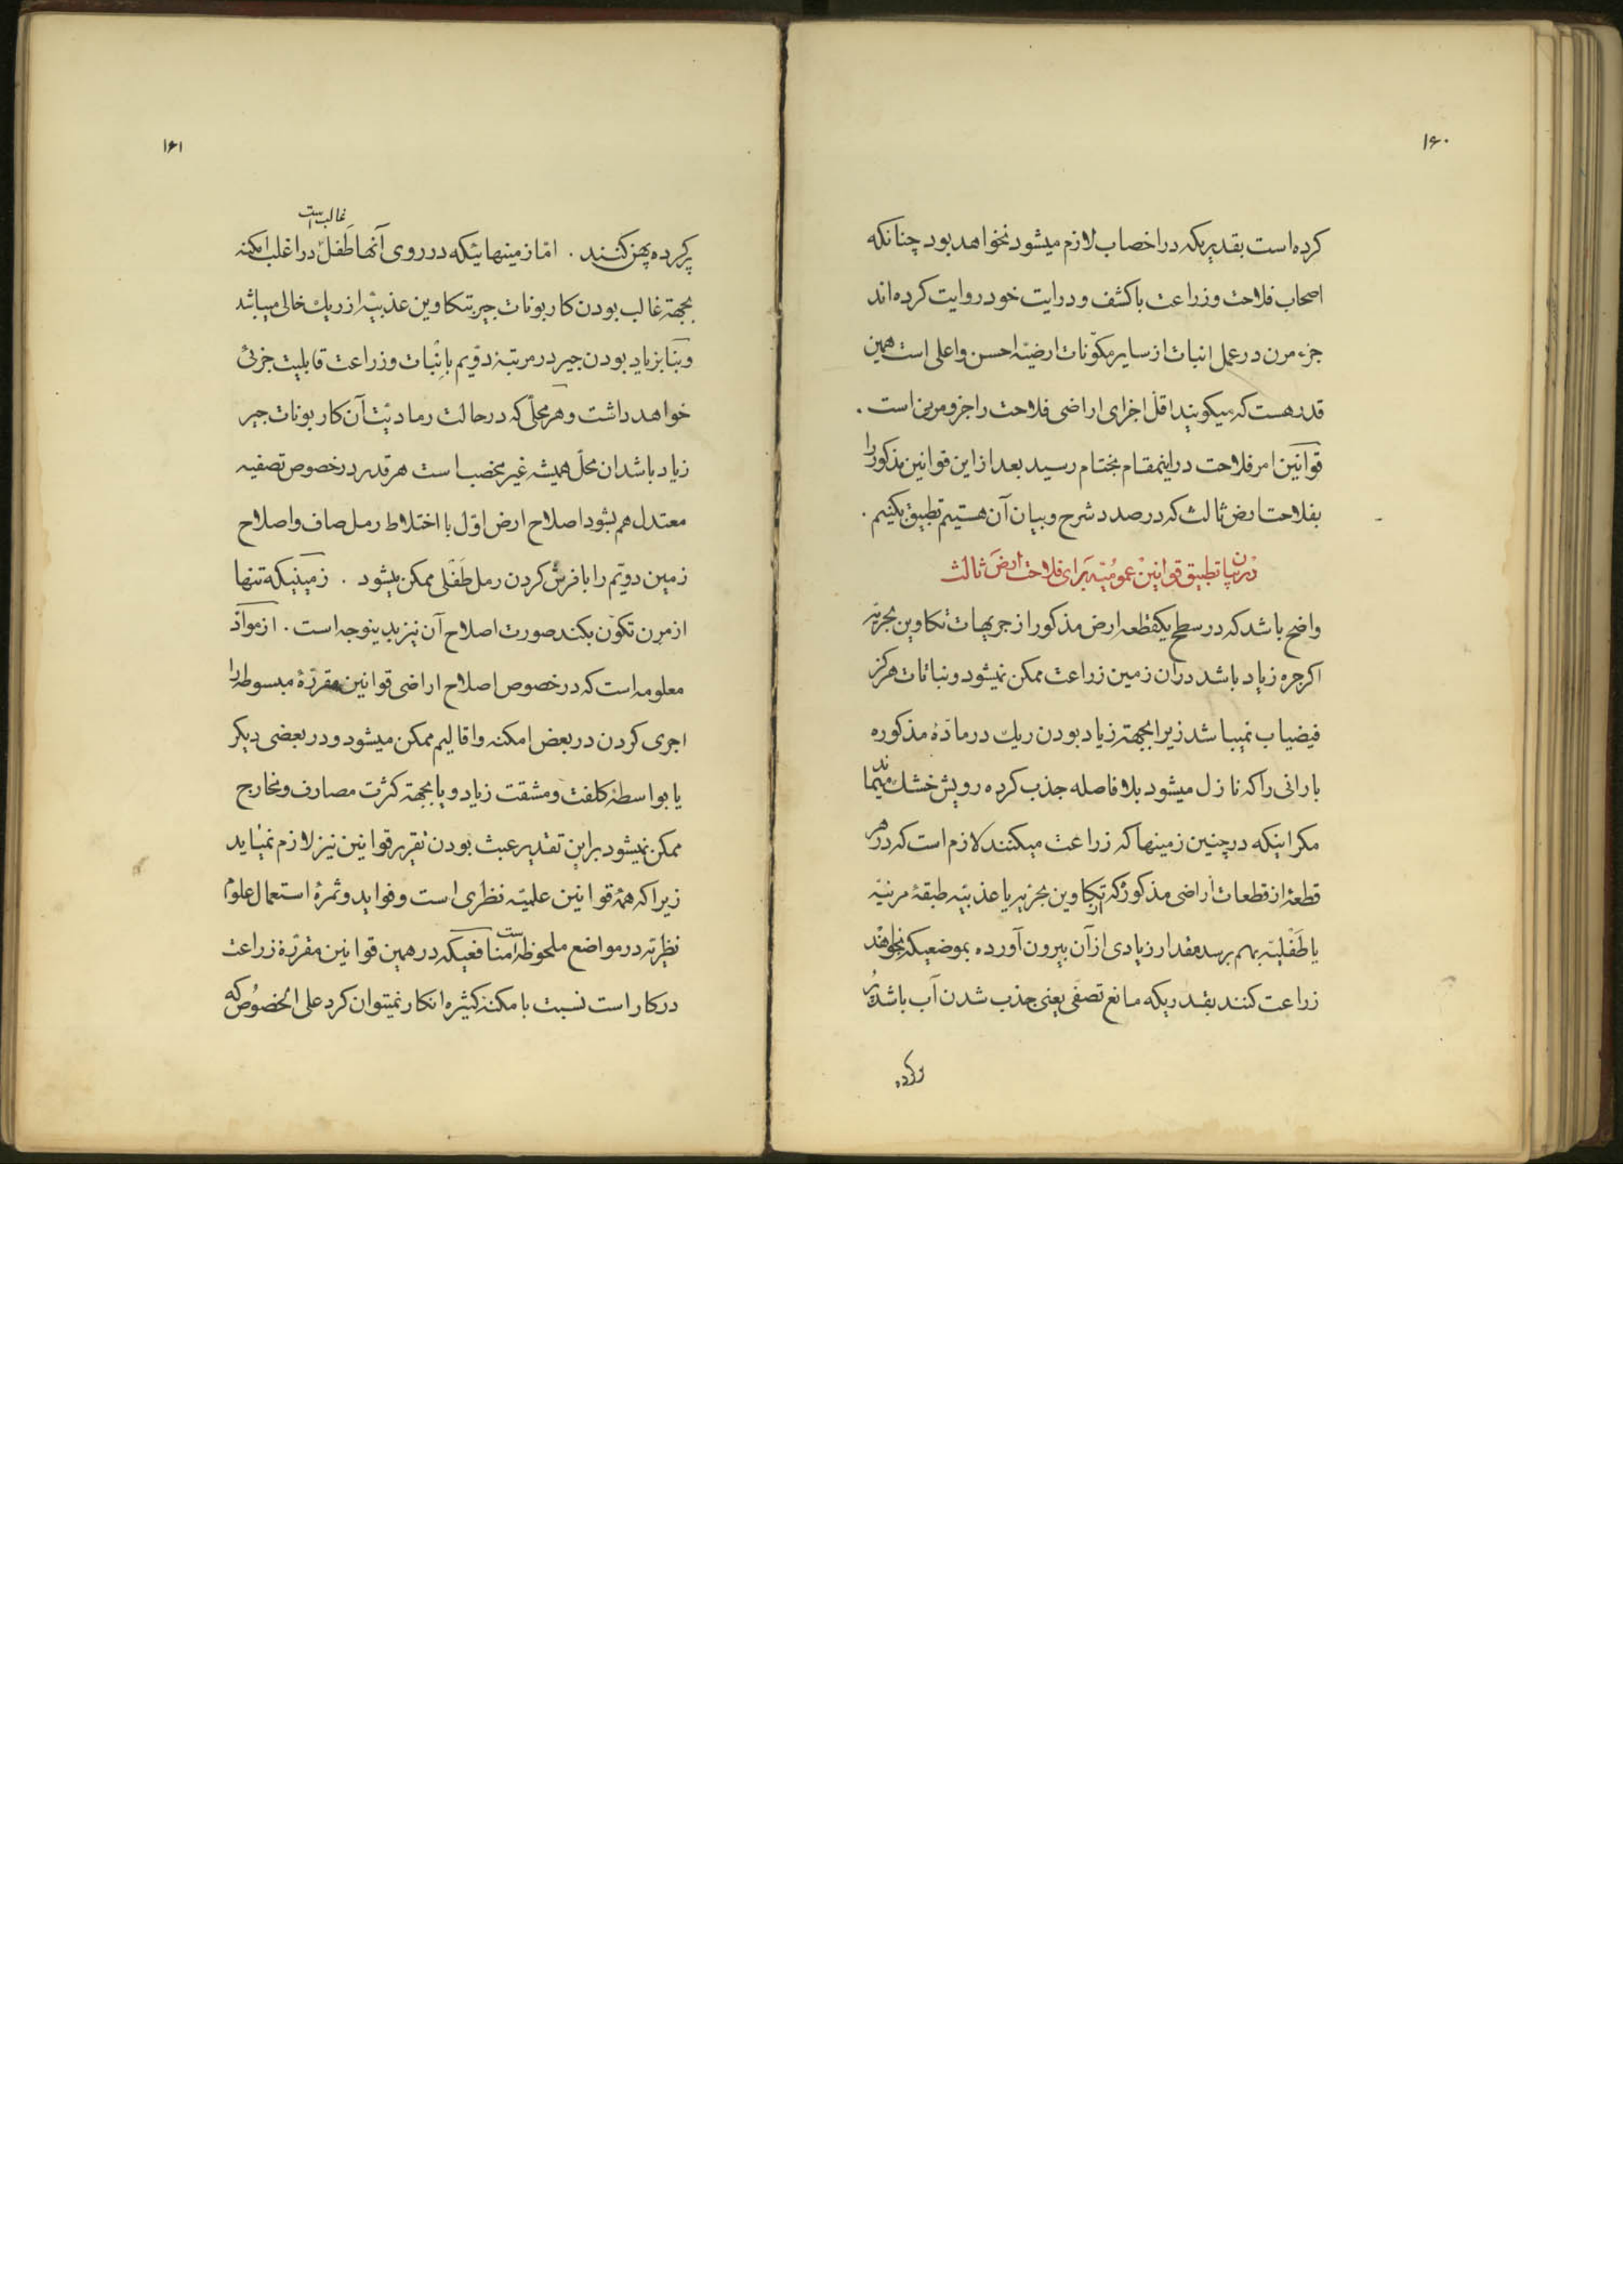 ۱۶۰
کرده است بقدریکه در اخصاب لازم میشود نخواهد بود چنانکه
اصحاب فلاحت و زراعت با کشف و درایت خود روایت کرده اند
جزء مرن در عمل انبات از سایر مکوّنات ارضیّه احسن و اعلی است همین
قدر هست که میکویند اقلّ اجزای اراضی فلاحت را جزو مرنی است .
قوانین امر فلاحت در اینمقام بختام رسید بعد از این قوانین مذکور را
بفلاحت ارض ثالث که در صدد شرح و بیان آن هستیم تطبیق بکنیم .
در بیان تطبیق قوانین عمومیّه برای فلاحت ارض ثالث
واضح باشد که در سطح یکقطعه ارض مذکور از جریهات تکاوین بحریّه
اکر جره زیاد باشد در ان زمین زراعت ممکن نمیشود و نباتات هرکز
فیضیاب نمیباشد زیرا بجهته زیاد بودن ریك در مادّهٔ مذکوره
بارانی را که نازل میشود بلا فاصله جذب کرده رویش خشك میماند
مکر اینکه در چنین زمینها که زراعت میکنند لازم است که در هر
قطعهٔ از قطعات اراضی مذکور که از تکاوین بحریّه یا عذبیّه طبقهٔ مرنیّه
یا طَفْلیّه بهم برسد مقدار زیادی از آن بیرون آورده بموضعیکه بخواهند
زراعت کنند بقدریکه مانع تصفّی یعنی جذب شدن آب باشد پُر
پرکرده
۱۶۱
پر کرده پهن کنند . امّا زمینهائیکه در روی آنها طَفل غالب است در اغلب امکنه
بجهته غالب بودن کاربونات جیر بتکاوین عذبیّه از ریك خالی میباشد
و بنا بزیاد بودن جیر در مرتبهٔ دوّیم بانبات و زراعت قابلیت جزئی
خواهد داشت و هر محلّی که در حالت رمادیّت آن کاربونات جیر
زیاد باشد ان محلّ همیشه غیر مخصب است هر قدر در خصوص تصفیه
معتدل هم بشود اصلاح ارض اوّل با اختلاط رمل صاف و اصلاح
زمین دویّم را با فرش کردن رمل طَفْلی ممکن میشود . زمینیکه تنها
از مرن تکوّن بکند صورت اصلاح آن نیز بدینوجه است . از موادّ
معلومه است که در خصوص اصلاح اراضی قوانین مقرّرهٔ مبسوطه را
اجری کردن در بعض امکنه و اقالیم ممکن میشود و در بعضی دیکر
یا بواسطهٔ کلفت و مشقت زیاد و یا بجهته کثرت مصارف و مخارج
ممکن نمیشود بر این تقدیر عبث بودن تقریر قوانین نیز لازم نمیاید
زیرا که همهٔ قوانین علمیّه نظری است و فواید و ثمرهٔ استعمال علوم
نظریّه در مواضع ملحوظه است منافعیکه در همین قوانین مقرّرهٔ زراعت
در کار است نسبت بامکنهٔ کثیره انکار نمیتوان کرد علی الخصوص که